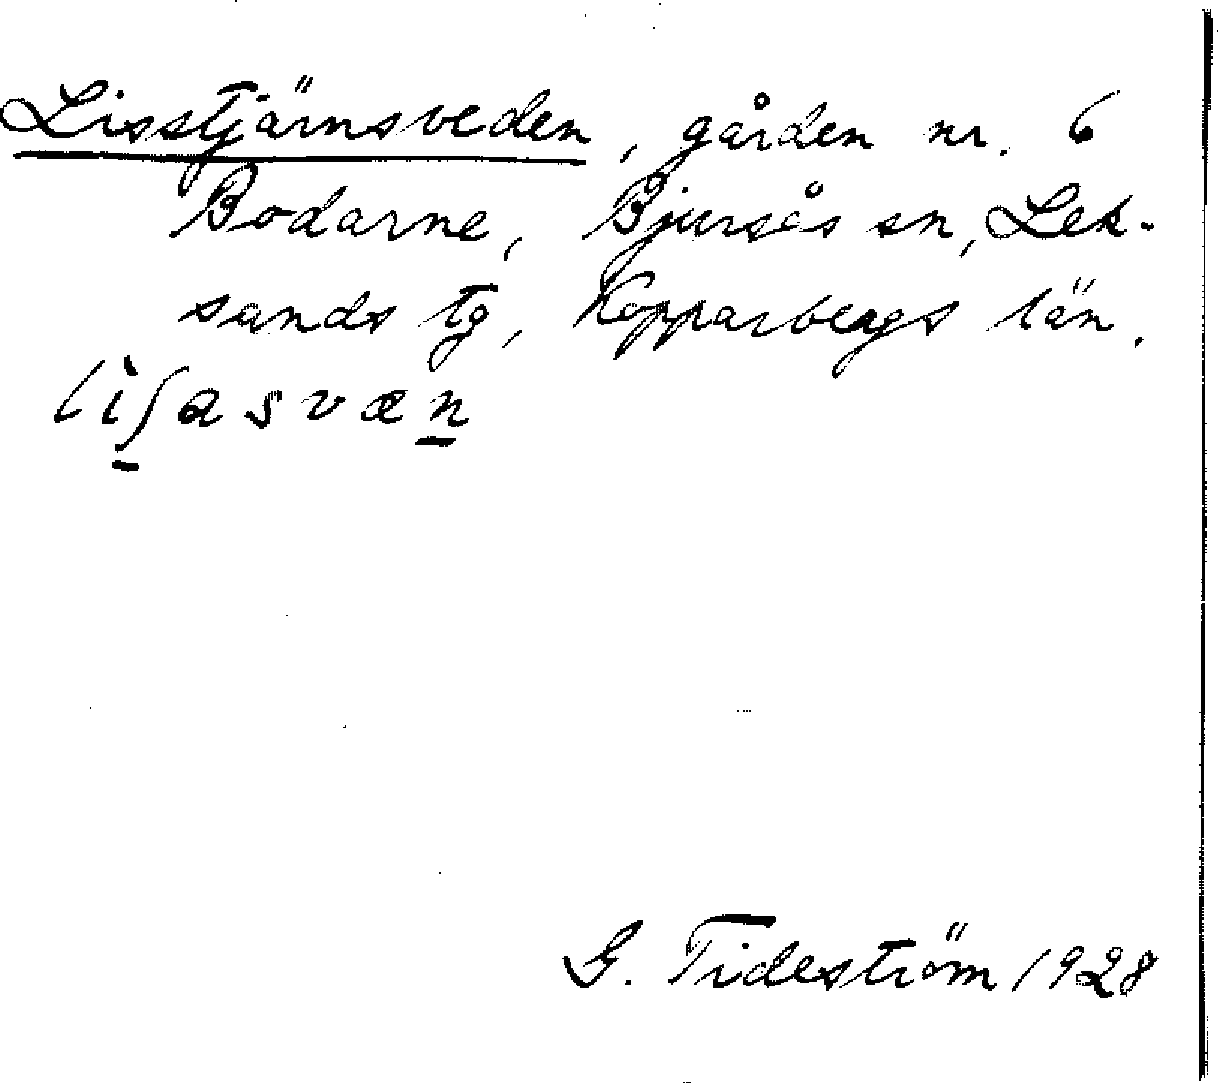 Lisstjärnsveden, gården nr. 6
Bodarne, Bjursås sn, Lek-
sands tg, Kopparbergs län.
lìʃasvæn
G. Tideström 1928